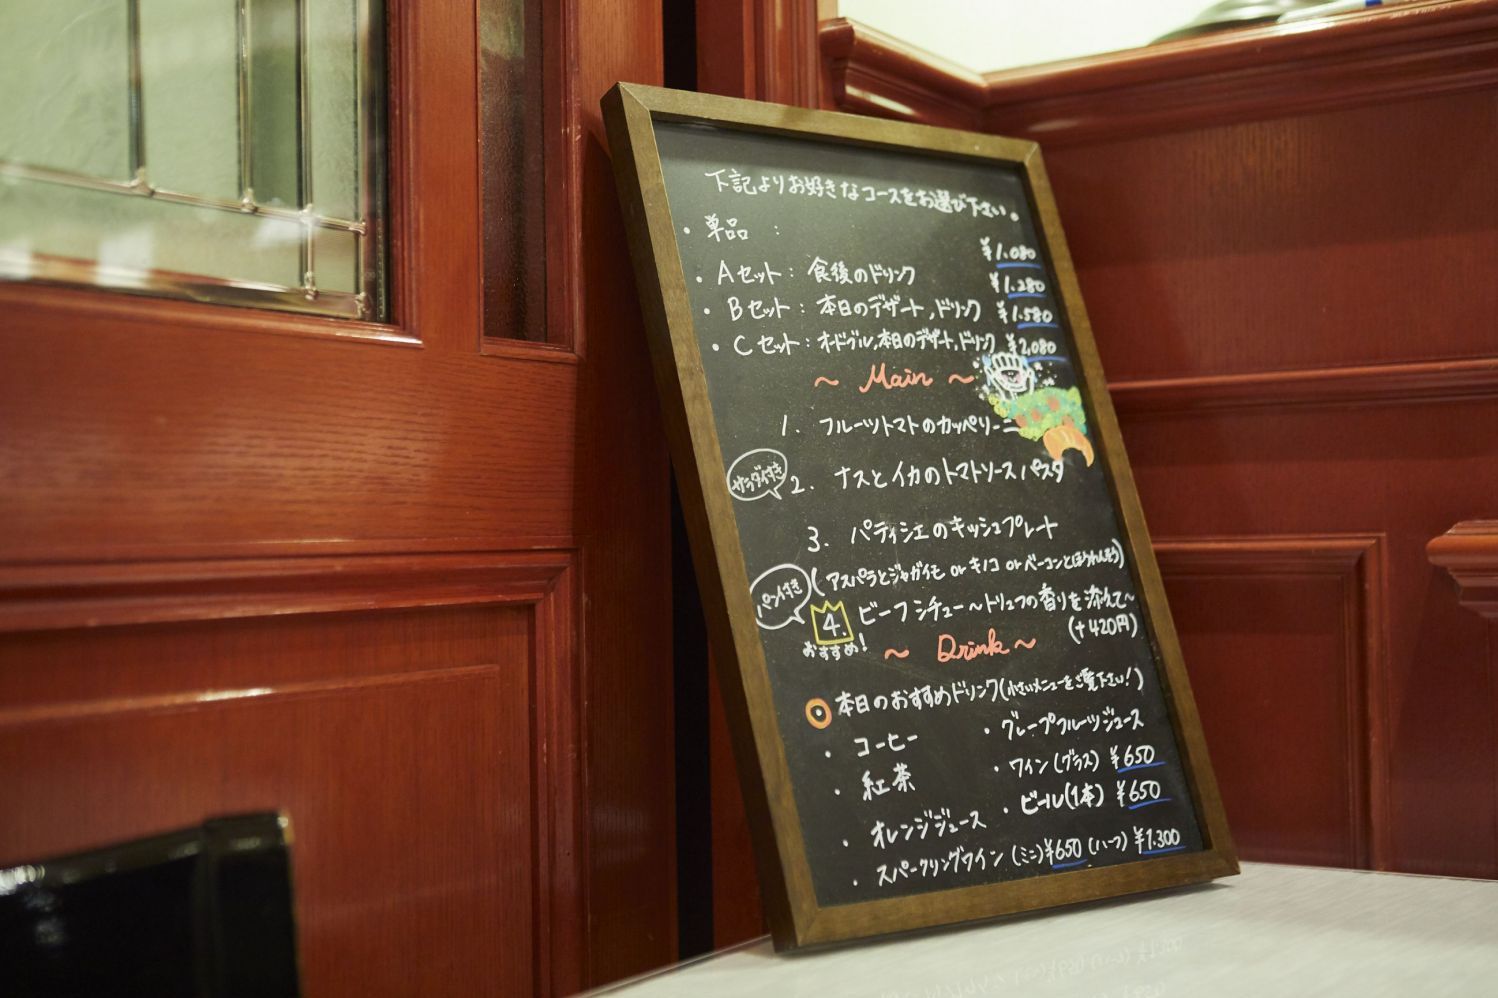 下記よりお好きなコースをお選び下さい。
・単品 : ¥1,080
・Aセット : 食後のドリンク ¥1,280
・Bセット : 本日のデザート,ドリンク ¥1,580
・Cセット : オードブル,本日のデザート,ドリンク ¥2,080
～ Main ～
1. フルーツトマトのカッペリーニ
サラダ付き
2. ナスとイカのトマトソースパスタ
3. パティシエのキッシュプレート
(アスパラとジャガイモ or キノコ or ベーコンとほうれんそう)
パン付き
4. ビーフシチュー～トリュフの香りを添えて～
おすすめ! (+420円)
～ Drink ～
本日のおすすめドリンク(小さいメニューをご覧下さい!)
・コーヒー ・グレープフルーツジュース
・紅茶 ・ワイン(グラス) ¥650
・オレンジジュース ・ビール(1本) ¥650
・スパークリングワイン (ミニ)¥650 (ハーフ) ¥1,300